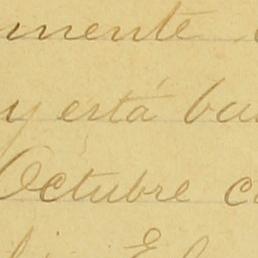 mente
y está ba
Octubre c